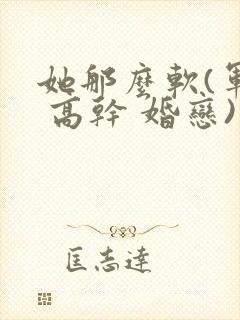 她那麼軟(軍
高幹 婚戀)
匡志達